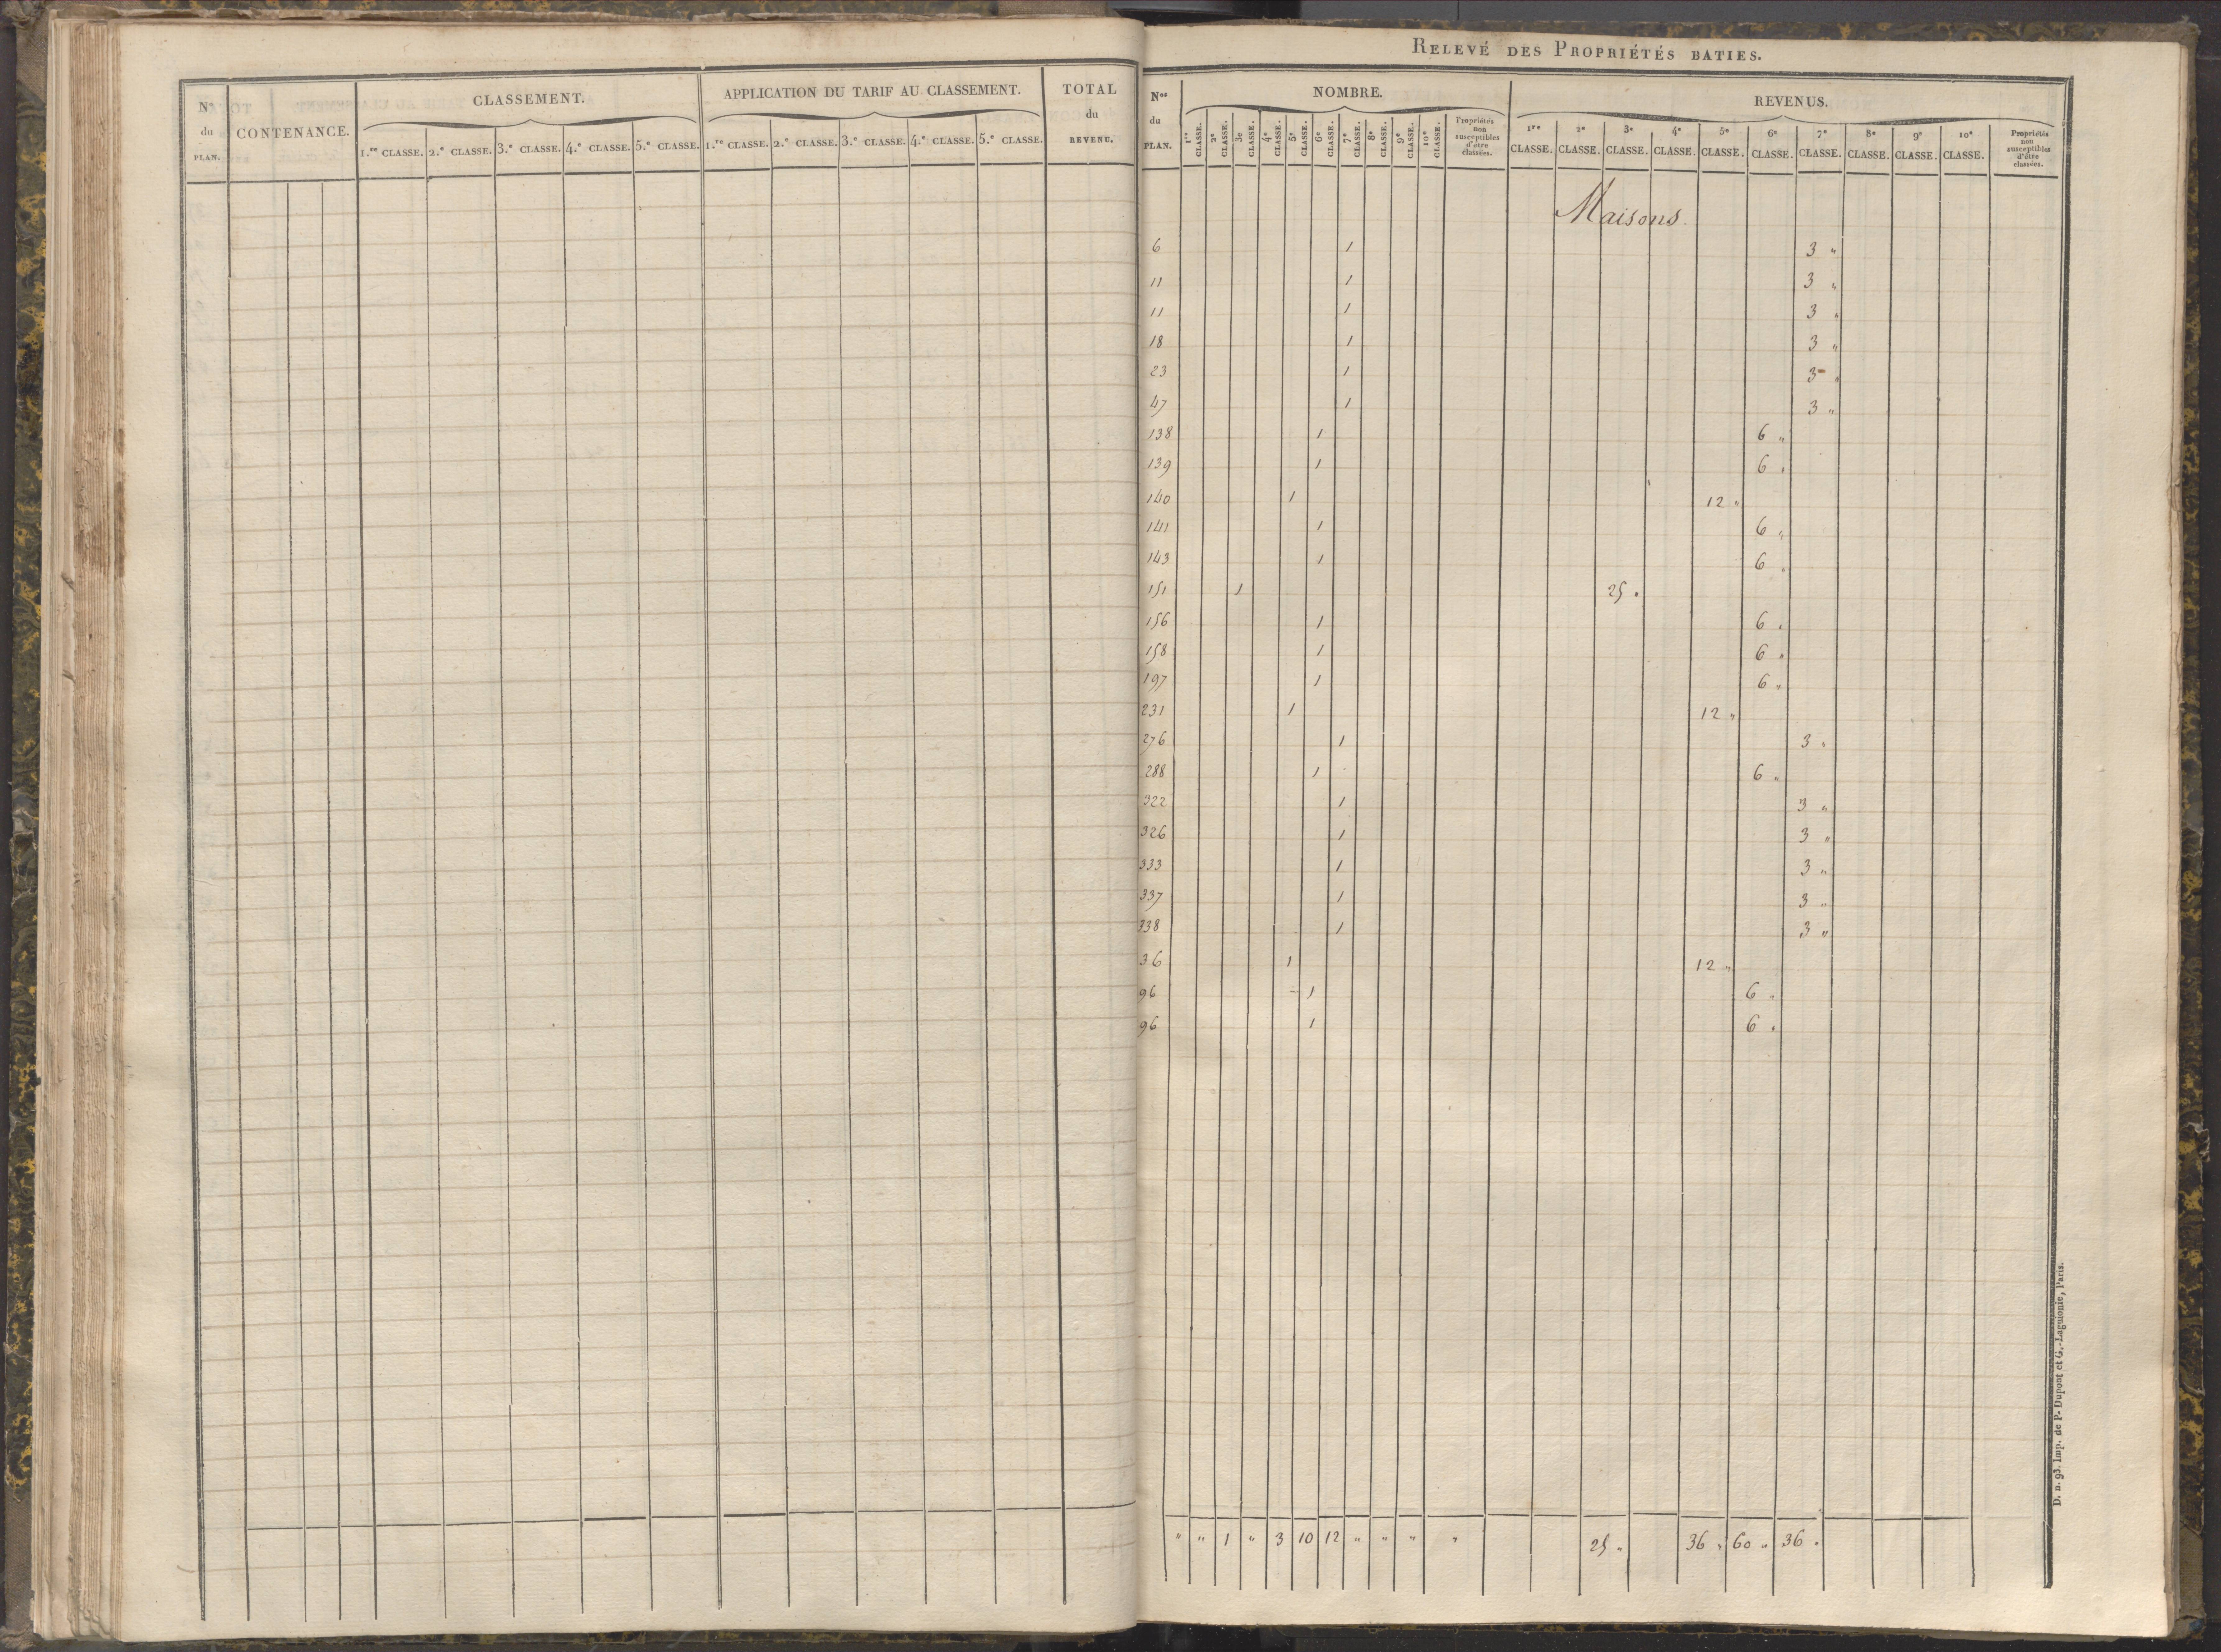 N.º du PLAN. CONTENANCE. CLASSEMENT. APPLICATION DU TARIF AU CLASSEMENT. TOTAL du REVENU.
1.re CLASSE. 2.e CLASSE. 3.e CLASSE. 4.e CLASSE. 5.e CLASSE. 1.re CLASSE. 2.e CLASSE. 3.e CLASSE. 4.e CLASSE. 5.e CLASSE.
RELEVÉ DES PROPRIÉTÉS BATIES.
Nos du PLAN. NOMBRE. REVENUS.
1re CLASSE. 2e CLASSE. 3e CLASSE. 4e CLASSE. 5e CLASSE. 6e CLASSE. 7e CLASSE. 8e CLASSE. 9e CLASSE. 10e CLASSE. Propriétés non susceptibles d'être classées. 1re CLASSE. 2e CLASSE. 3e CLASSE. 4e CLASSE. 5e CLASSE. 6e CLASSE. 7e CLASSE. 8e CLASSE. 9e CLASSE. 10e CLASSE. Propriétés non susceptibles d'être classées.
Maisons.
6 1 3 "
11 1 3 "
11 1 3 "
18 1 3 "
23 1 3 "
47 1 3 "
138 1 6 "
139 1 6 "
140 1 12 "
141 1 6 "
143 1 6 "
151 1 25 "
156 1 6 "
158 1 6 "
197 1 6 "
231 1 12 "
276 1 3 "
288 1 6 "
322 1 3 "
326 1 3 "
333 1 3 "
337 1 3 "
338 1 3 "
36 1 12 "
96 1 6 "
96 1 6 "
" " 1 " 3 10 12 " " " " 25 " 36 " 60 " 36 "
D. n. 93. Imp. de P. Dupont et G.-Laguionie, Paris.